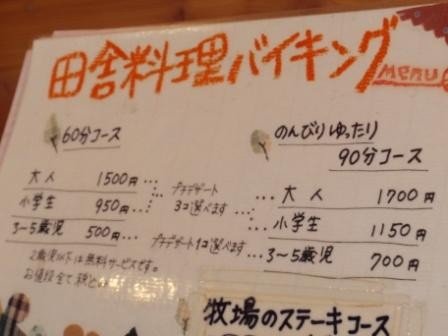 田舎料理バイキング
MENU
60分コース
大人 1500円
小学生 950円
3~5歳児 500円
プチデザート
3コ選べます
プチデザート1コ選べます
2歳児以下は無料サービスです。
お値段全て税
のんびりゆったり
90分コース
大人 1700円
小学生 1150円
3~5歳児 700円
牧場のステーキコース